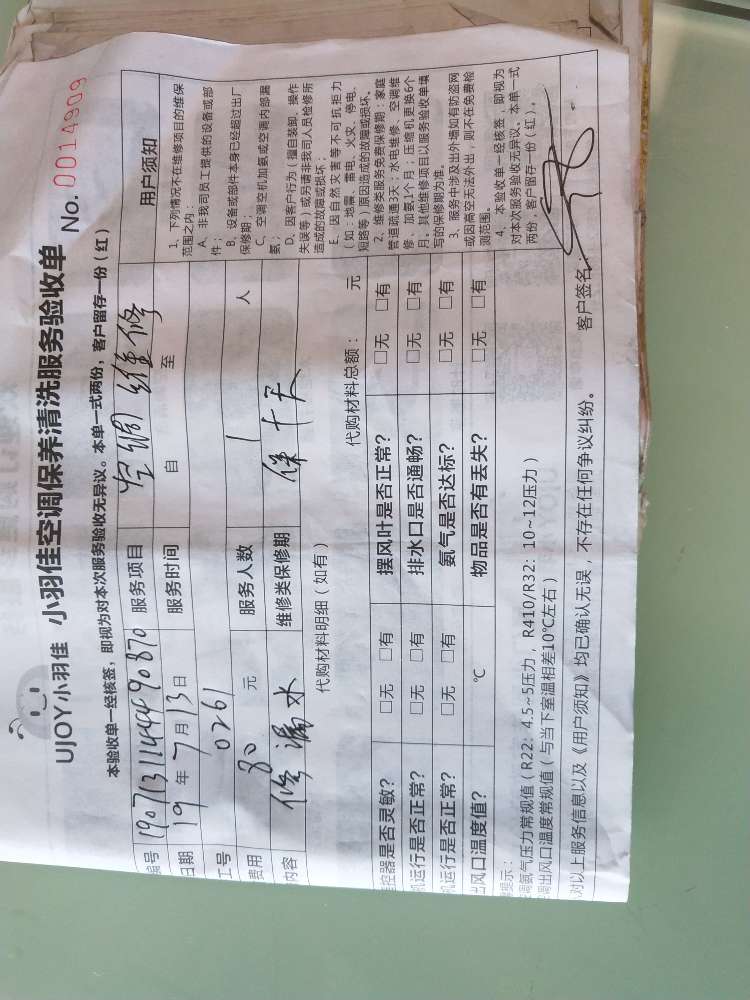 UJOY小羽佳 小羽佳空调保养清洗服务验收单 No. 0014909
本验收单一经核签，即视为对本次服务验收无异议。本单一式两份，客户留存一份（红）
编号 190713114449 0870 服务项目 空调维修
日期 19年7月13日 服务时间 自 至
工号 0261
费用 80 元 服务人数 1 人
内容 修漏水 维修类保修期 保十天
用户须知
1、下列情况不在维修项目的维保
范围之内：
A、非我司员工提供的设备或部
件；
B、设备或部件本身已经超过出厂
保修期；
C、空调空机加氨或空调内部漏
氨；
D、因客户行为（擅自装卸、操作
失误等）或另请非我司人员检修所
造成的故障或损坏；
E、因自然灾害等不可抗拒力
（如：地震、雷电、火灾、停电、
短路等）原因造成的故障或损坏。
2、维修类服务免费保修期：家庭
管道疏通3天；水电维修、空调维
修、加氨1个月；压缩机更换6个
月。其他维修项目以服务验收单填
写的保修期为准。
3、服务中涉及出外墙如有防盗网
或因高空无法外出，则不在免费检
测范围。
4、本验收单一经核签，即视为
对本次服务验收无异议。本单一式
两份，客户留存一份（红）。
代购材料明细（如有） 代购材料总额： 元
控器是否灵敏？ □无 □有 摆风叶是否正常？ □无 □有
机运行是否正常？ □无 □有 排水口是否通畅？ □无 □有
机运行是否正常？ □无 □有 氨气是否达标？ □无 □有
出风口温度值？ ℃ 物品是否有丢失？ □无 □有
提示：
调氨气压力常规值（R22：4.5~5压力，R410/R32：10~12压力）
调出风口温度常规值（与当下室温相差10℃左右）
对以上服务信息以及《用户须知》均已确认无误，不存在任何争议纠纷。 客户签名：